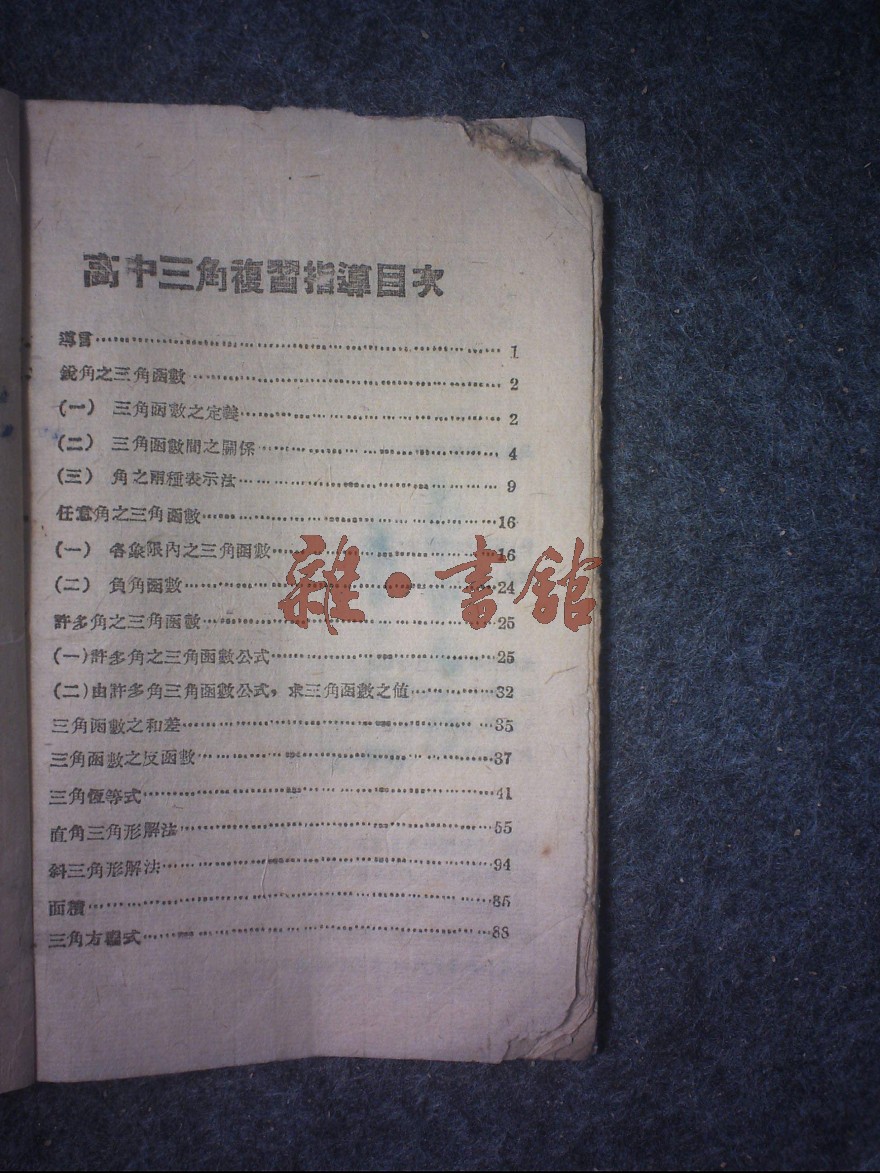 高中三角複習指導目次
導言 1
銳角之三角函數 2
(一) 三角函數之定義 2
(二) 三角函數間之關係 4
(三) 角之兩種表示法 9
任意角之三角函數 16
(一) 各象限內之三角函數 16
(二) 負角函數 24
許多角之三角函數 25
(一)許多角之三角函數公式 25
(二)由許多角三角函數公式，求三角函數之值 32
三角函數之和差 35
三角函數之反函數 37
三角恆等式 41
直角三角形解法 55
斜三角形解法 94
面積 85
三角方程式 88
雜·書館